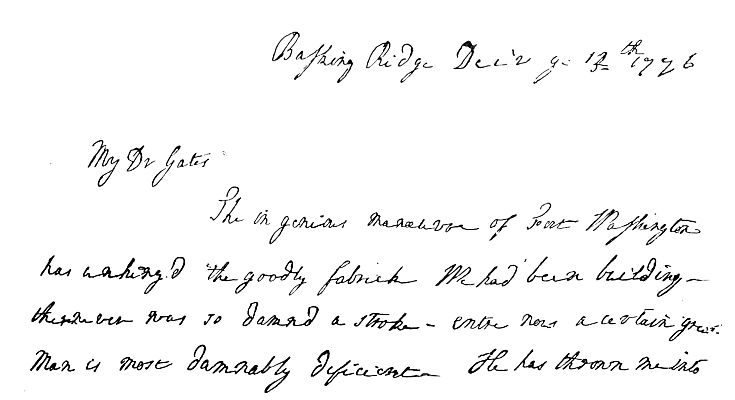 Baſking Ridge Decr ye 13th 1776
My Dr Gates
The ingenious manœuvre of Fort Waſhington
has unhing'd the goodly fabrick We had been building—
there never was so damn'd a stroke— entre nous a certain great
Man is most damnably deficient— He has thrown me into